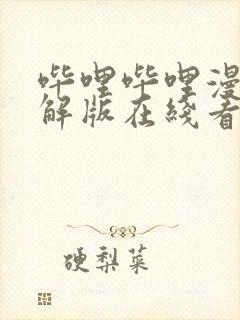 哔哩哔哩漫
解版在线看
硬梨菜